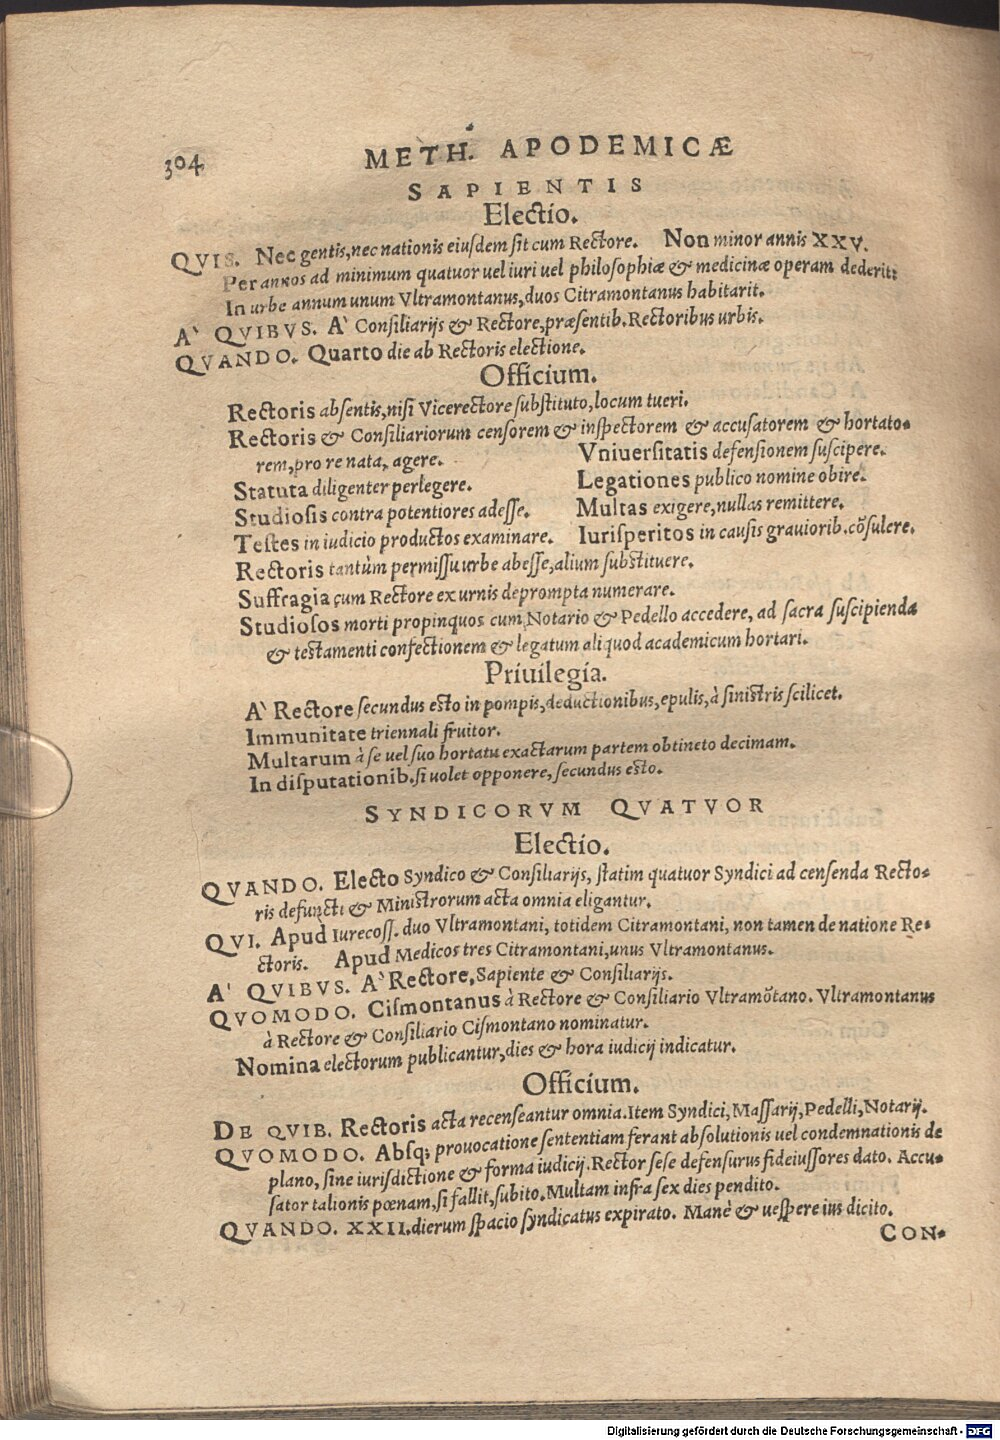 304
METH. APODEMICÆ
SAPIENTIS
Electio.
QVIS. Nec gentis, nec nationis eiuſdem ſit cum Rectore. Non minor annis XXV.
Per annos ad minimum quatuor uel iuri uel philoſophiæ & medicinæ operam dederit:
In urbe annum unum Vltramontanus, duos Citramontanus habitarit.
A` QVIBVS. A` Conſiliarijs & Rectore, præſentib. Rectoribus urbis.
QVANDO. Quarto die ab Rectoris electione.
Officium.
Rectoris abſentis, niſi Vicerectore ſubſtituto, locum tueri.
Rectoris & Conſiliariorum cenſorem & inſpectorem & accuſatorem & hortato-
rem, pro re nata, agere. Vniuerſitatis defenſionem ſuſcipere.
Statuta diligenter perlegere. Legationes publico nomine obire.
Studioſis contra potentiores adeſſe. Multas exigere, nullas remittere.
Teſtes in iudicio productos examinare. Iuriſperitos in cauſis grauiorib. cōſulere.
Rectoris tantùm permiſſu urbe abeſſe, alium ſubſtituere.
Suffragia cum Rectore ex urnis deprompta numerare.
Studioſos morti propinquos cum Notario & Pedello accedere, ad ſacra ſuſcipienda
& teſtamenti confectionem & legatum aliquod academicum hortari.
Priuilegia.
A` Rectore ſecundus eſto in pompis, deductionibus, epulis, à ſiniſtris ſcilicet.
Immunitate triennali fruitor.
Multarum à ſe uel ſuo hortatu exactarum partem obtineto decimam.
In diſputationib. ſi uolet opponere, ſecundus eſto.
SYNDICORVM QVATVOR
Electio.
QVANDO. Electo Syndico & Conſiliarijs, ſtatim quatuor Syndici ad cenſenda Recto-
ris defuncti & Miniſtrorum acta omnia eligantur.
QVI. Apud Iurecoſſ. duo Vltramontani, totidem Citramontani, non tamen de natione Re-
ctoris. Apud Medicos tres Citramontani, unus Vltramontanus.
A' QVIBVS. A` Rectore, Sapiente & Conſiliarijs.
QVOMODO. Ciſmontanus à Rectore & Conſiliario Vltramōtano. Vltramontanus
à Rectore & Conſiliario Ciſmontano nominatur.
Nomina electorum publicantur, dies & hora iudicij indicatur.
Officium.
DE QVIB. Rectoris acta recenſeantur omnia. Item Syndici, Maſſarij, Pedelli, Notarij.
QVOMODO. Abſq; prouocatione ſententiam ferant abſolutionis uel condemnationis de
plano, ſine iurisdictione & forma iudicij. Rector ſeſe defenſurus fideiuſſores dato. Accu-
ſator talionis pœnam, ſi fallit, ſubito. Multam infra ſex dies pendito.
QVANDO. XXII. dierum ſpacio ſyndicatus expirato. Manè & ueſpere ius dicito.
CON-
Digitalisierung gefördert durch die Deutsche Forschungsgemeinschaft - DFG